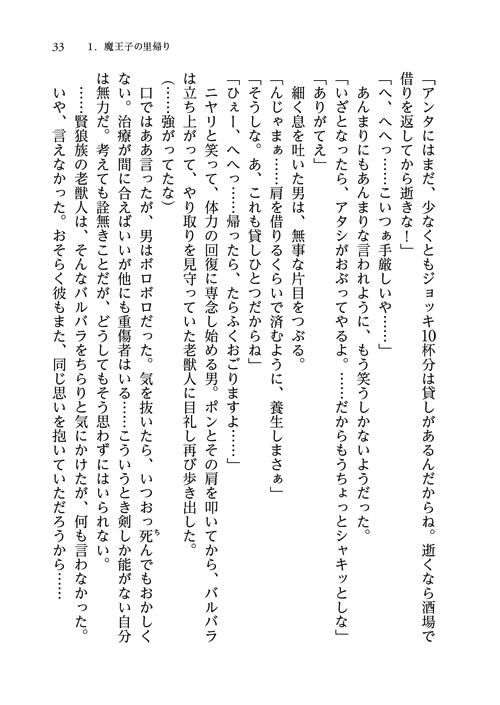 33　1．魔王子の里帰り
「アンタにはまだ、少なくともジョッキ10杯分は貸しがあるんだからね。逝くなら酒場で
借りを返してから逝きな！」
「へ、へへっ……こいつぁ手厳しいや……」
あんまりにもあんまりな言われように、もう笑うしかないようだった。
「いざとなったら、アタシがおぶってやるよ。……だからもうちょっとシャキッとしな」
「ありがてえ」
細く息を吐いた男は、無事な片目をつぶる。
「んじゃまぁ……肩を借りるくらいで済むように、養生しまさぁ」
「そうしな。あ、これも貸しひとつだからね」
「ひぇー、へへっ……帰ったら、たらふくおごりますよ……」
ニヤリと笑って、体力の回復に専念し始める男。ポンとその肩を叩いてから、バルバラ
は立ち上がって、やり取りを見守っていた老獣人に目礼し再び歩き出した。
（……強がってたな）
口ではああ言ったが、男はボロボロだった。気を抜いたら、いつおっ死んでもおかしく
ち
ない。治療が間に合えばいいが他にも重傷者はいる……こういうとき剣しか能がない自分
は無力だ。考えても詮無きことだが、どうしてもそう思わずにはいられない。
……賢狼族の老獣人は、そんなバルバラをちらりと気にかけたが、何も言わなかった。
いや、言えなかった。おそらく彼もまた、同じ思いを抱いていただろうから……